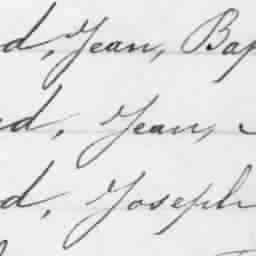 d, Jean, Bap
d, Jean,
d, Joseph